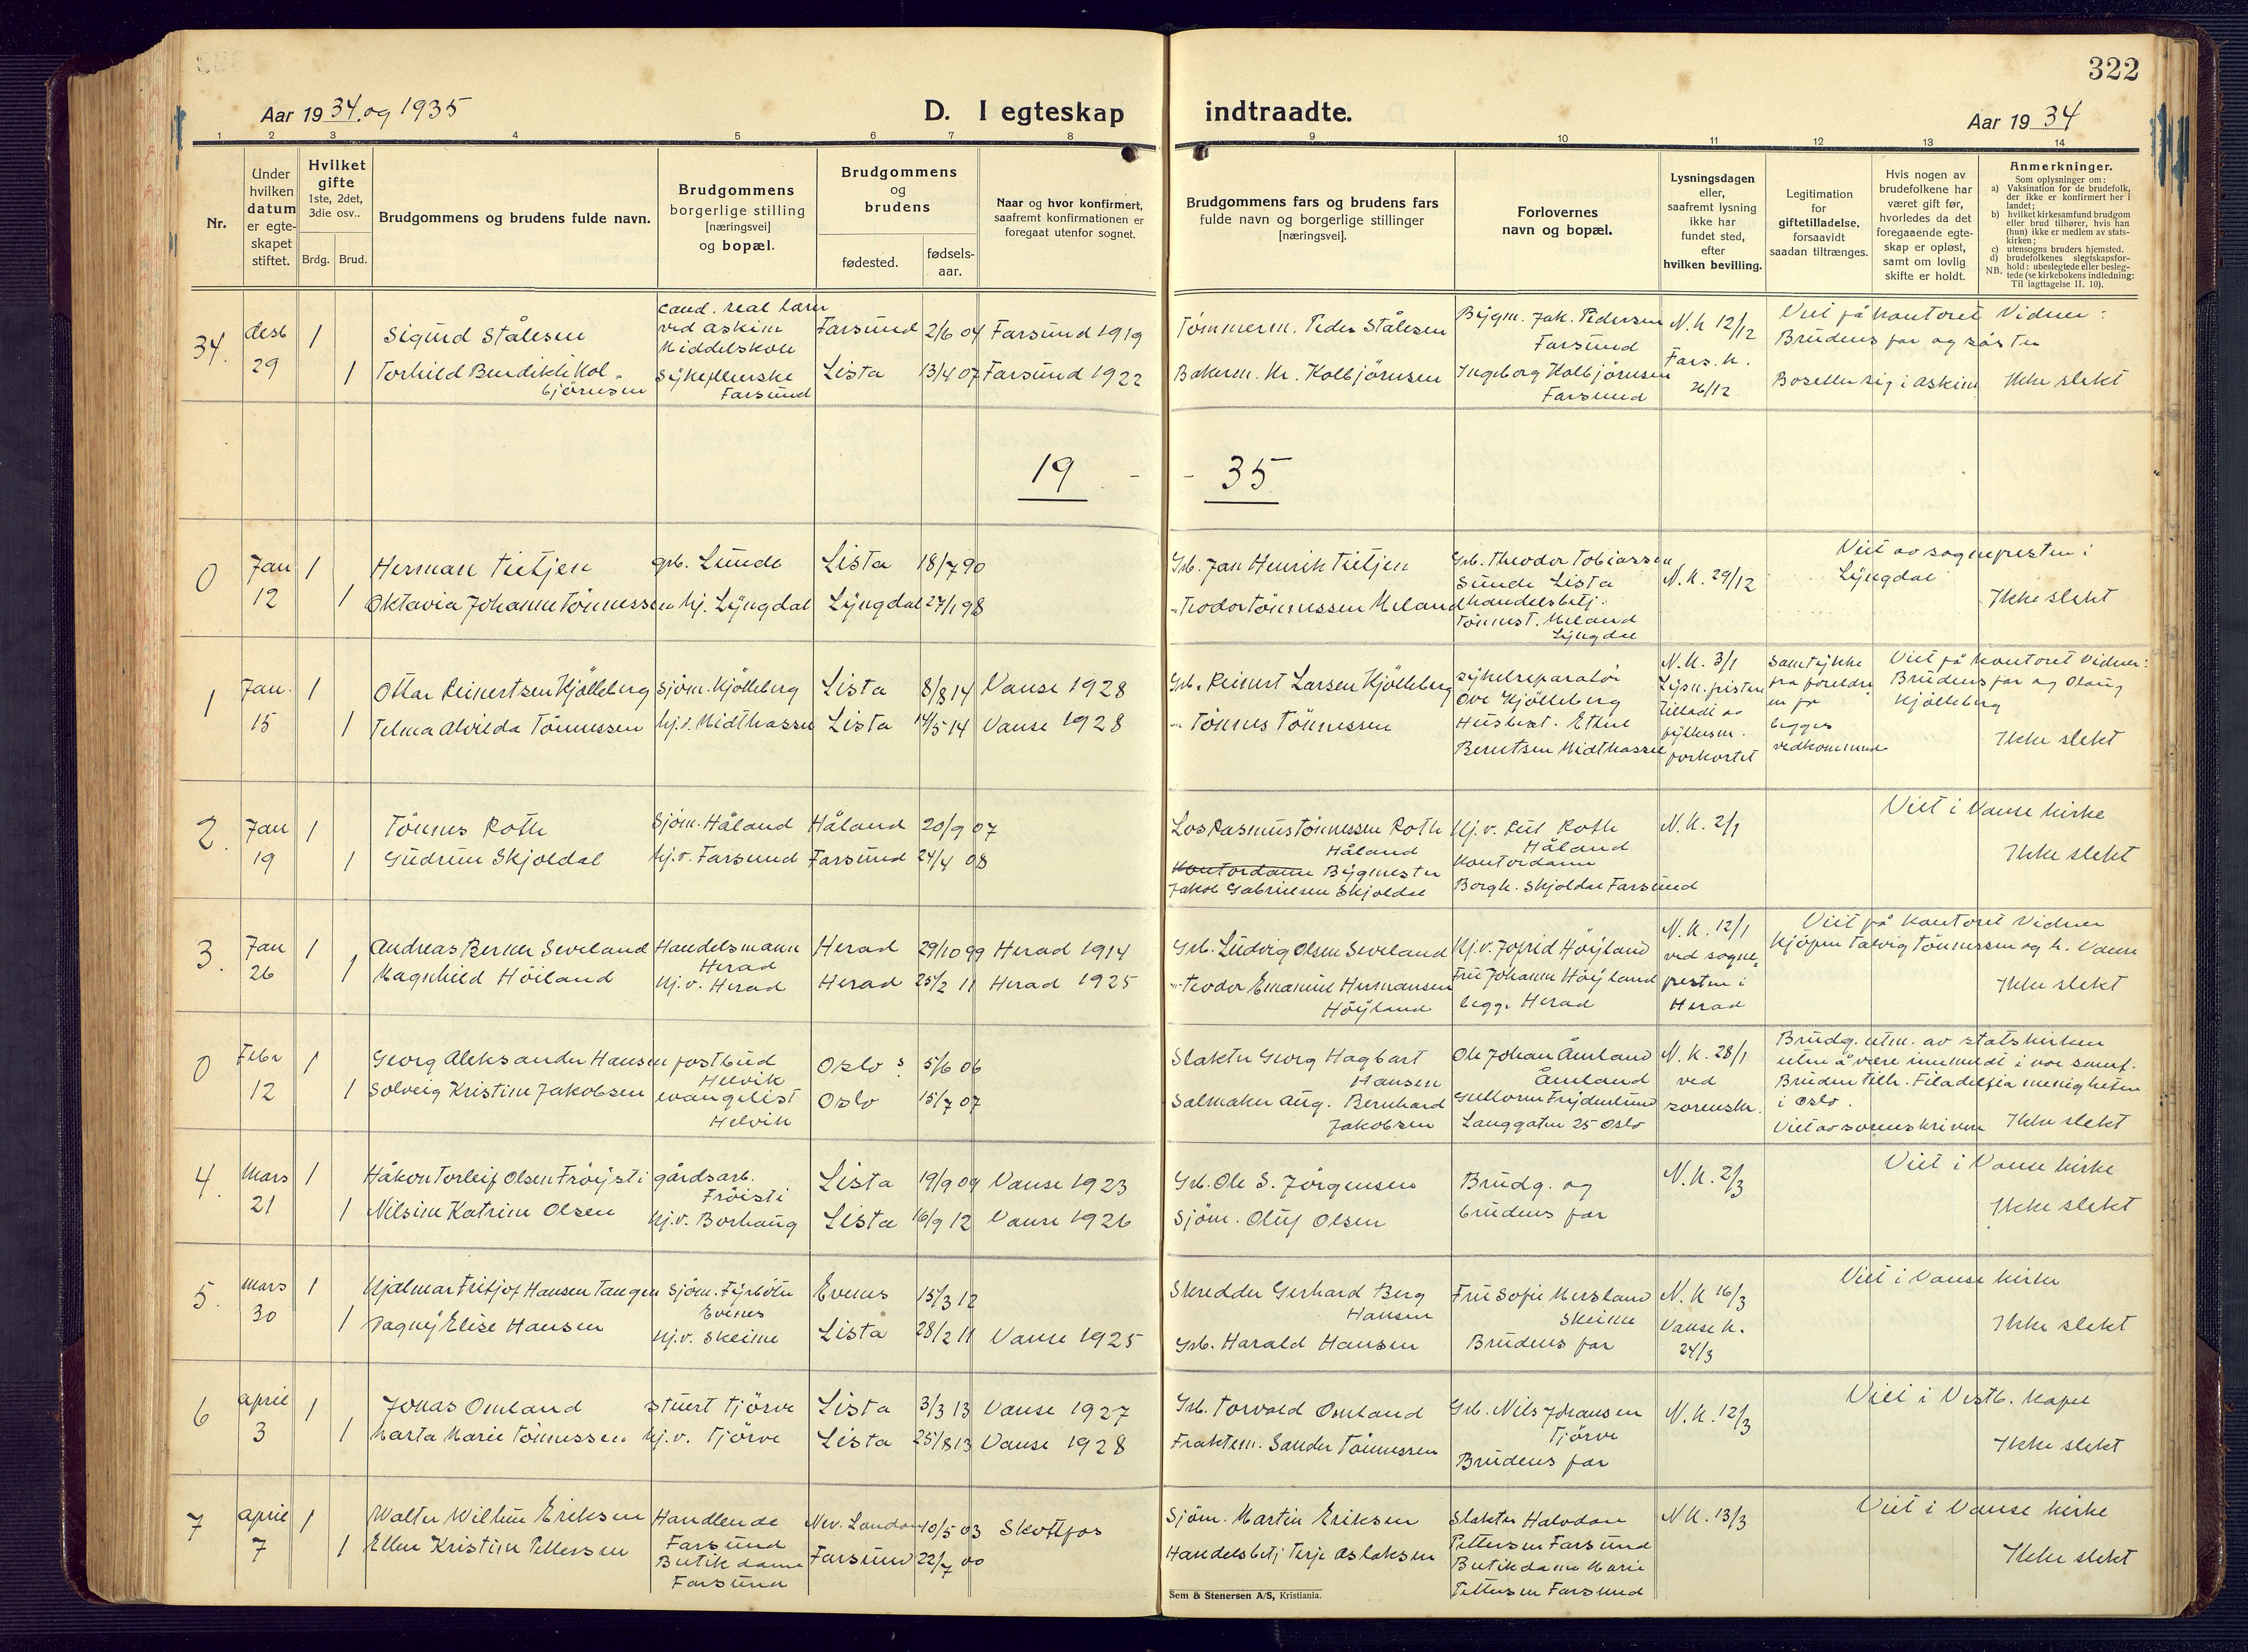 322
Aar 1934 og 1935
D. I egteskap indtraadte.
Aar 1934
1 2 3 4 5 6 7 8 9 10 11 12 13 14
Nr.
Under hvilken datum er egte-skapet stiftet.
Hvilket gifte 1ste, 2det, 3die osv..
Brdg. Brud.
Brudgommens og brudens fulde navn.
Brudgommens borgerlige stilling [næringsvei] og bopæl.
Brudgommens og brudens
fødested.
fødsels-aar.
Naar og hvor konfirmert, saafremt konfirmationen er foregaat utenfor sognet.
Brudgommens fars og brudens fars fulde navn og borgerlige stillinger [næringsvei].
Forlovernes navn og bopæl.
Lysningsdagen eller, saafremt lysning ikke har fundet sted, efter hvilken bevilling.
Legitimation for giftetilladelse, forsaavidt saadan tiltrænges.
Hvis nogen av brudefolkene har været gift før, hvorledes da det foregaaende egte-skap er opløst, samt om lovlig skifte er holdt.
Anmerkninger.
Som oplysninger om:
a) Vaksination for de brudefolk, der ikke er konfirmert her i landet;
b) hvilket kirkesamfund brudgom eller brud tilhører, hvis han (hun) ikke er medlem av stats-kirken;
c) utensogns bruders hjemsted.
d) brudefolkenes slegtskapsfor-hold: ubeslegtede eller besleg-tede (se kirkebokens indledning:
NB. Til iagttagelse II. 10).
34. desb 29 1 Sigurd Stålesen cand. real lærer ved Askim Middelskole Farsund 2/6 04 Farsund 1919 Tømmerm. Peder Stålesen Bygm. Jak. Pedersen Farsund N.K. 12/12 Viet på kontoret Vidner: Brudens far og søster
1 Torhild Bendikte Kolbjørnsen Sykepleierske Farsund Lista 13/4 07 Farsund 1922 Bakerm. Kr. Kolbjørnsen Ingeborg Kolbjørnsen Farsund Fars. K. 26/12 Bosetter sig i Askim Ikke slekt
19 - - 35
0 Jan 12 1 Herman Tietjen grb. Lunde Lista 18/7 90 Grb. Jan Henrik Tietjen Grb. Theodor Tobiassen Sunde Lista N.K. 29/12 Viet av sognepresten i Lyngdal
1 Oktavia Johanne Tønnessen hj. Lyngdal Lyngdal 27/1 98 -"- Teodor Tønnessen Meland handelsbetj. Tønnes T. Meland Lyngdal Ikke slekt
1 Jan. 15 1 Ottar Reinertsen Kjølleberg Sjøm. Kjølleberg Lista 8/8 14 Vanse 1928 Grb. Reinert Larsen Kjølleberg sykelreparatør Ove Kjølleberg N.K. 3/1 Lysn. fristen tilladt av fylkesm. forkortet Samtykke fra foreldrene for begges vedkommende Viet på kontoret Vidner: Brudens far og Olaug Kjølleberg
1 Telma Alvilda Tønnessen hj.v. Midthassel Lista 14/5 14 Vanse 1928 -"- Tønnes Tønnessen Husbest. Berntsen Midthassel Ikke slekt
2. Jan 19 1 Tønnes Roth Sjøm. Håland Håland 20/9 07 Los Rasmus Tønnessen Roth Håland Hj.v. Roth Håland N.K. 2/1 Viet i Vanse kirke
1 Gudrun Skjoldal hj.v. Farsund Farsund 24/4 08 Kontordame Bygmester Jakob Gabrielsen Skjoldal Kontordame Borgh. Skjoldal Farsund Ikke slekt
3. Jan 26 1 Andreas Berner Seveland Handelsmann Herad Herad 29/10 99 Herad 1914 Grb. Ludvig Olsen Seveland Hj.v. Jofrid Høiland N.K. 12/1 ved sogne-presten i Herad Viet på kontoret Vidner Kjøpm Talvig Tønnessen og h. Vanse
1 Magnhild Høiland hj.v. Herad Herad 25/2 11 Herad 1925 -"- Teodor Emanuel Hermansen Høyland Fru Johanne Høyland begge Herad Ikke slekt
0 Febr 12 1 Georg Aleksander Hansen postbud Helvik Oslo? 5/6 06 Slakter Georg Hagbart Hansen Ole Johan Åmland Åmland N.K. 28/1 ved sorenskr. Brudg. utm. av statskirken uten å være innmeldt i noe samf. Bruden tilh. Filadelfia menigheten i Oslo.
1 Solveig Kristine Jakobsen evangelist Helvik Oslo 15/7 07 Salmaker Aug. Bernhard Jakobsen Langgaten 25 Oslo Viet av sorenskriveren Ikke slekt
4. Mars 21 1 Håkon Torleif Olsen Frøysti gårdsarb. Frøisti Lista 19/9 09 Vanse 1923 Grb. Ole S. Jørgensen Brudg. og brudens far N.K. 2/3 Viet i Vanse kirke
1 Nilsine Katrine Olsen hj.v. Borhaug Lista 16/9 12 Vanse 1926 Sjøm. Oluf Olsen Ikke slekt
5. Mars 30 1 Hjalmar Fritjof Hansen Tangen Sjøm. Evenes Evenes 15/3 12 Skredder Gerhard Berg Hansen Fru Sofie Mersland Skeime N.K 16/3 Vanse K. 24/3 Viet i Vanse kirke
1 Dagny Elise Hansen hj.v. Skeime Lista 28/2 11 Vanse 1925 Grb. Harald Hansen Brudens far Ikke slekt
6 April 3 1 Jonas Omland stuert Tjørve Lista 3/3 13 Vanse 1927 Grb. Torvald Omland Grb. Nils Johansen Tjørve N.K. 12/3 Viet i Vestb. Kapel
1 Marta Marie Tønnessen hj.v. Tjørve Lista 25/8 13 Vanse 1928 Fraktem. Sander Tønnessen Brudens far Ikke slekt
7 April 7 1 Walter Wilhim Eriksen Handlende Farsund New. London 10/5 03 Skotfos Sjøm. Martin Eriksen Slakter Halvdan Pettersen Farsund N.K. 13/3 Viet i Vanse kirke
1 Ellen Kristine Pettersen Butikdame Farsund Farsund 22/7 00 Handelsbetj Terje Aslaksen Butikdame Marie Pettersen Farsund Ikke slekt
Sem & Stenersen A/S, Kristiania.